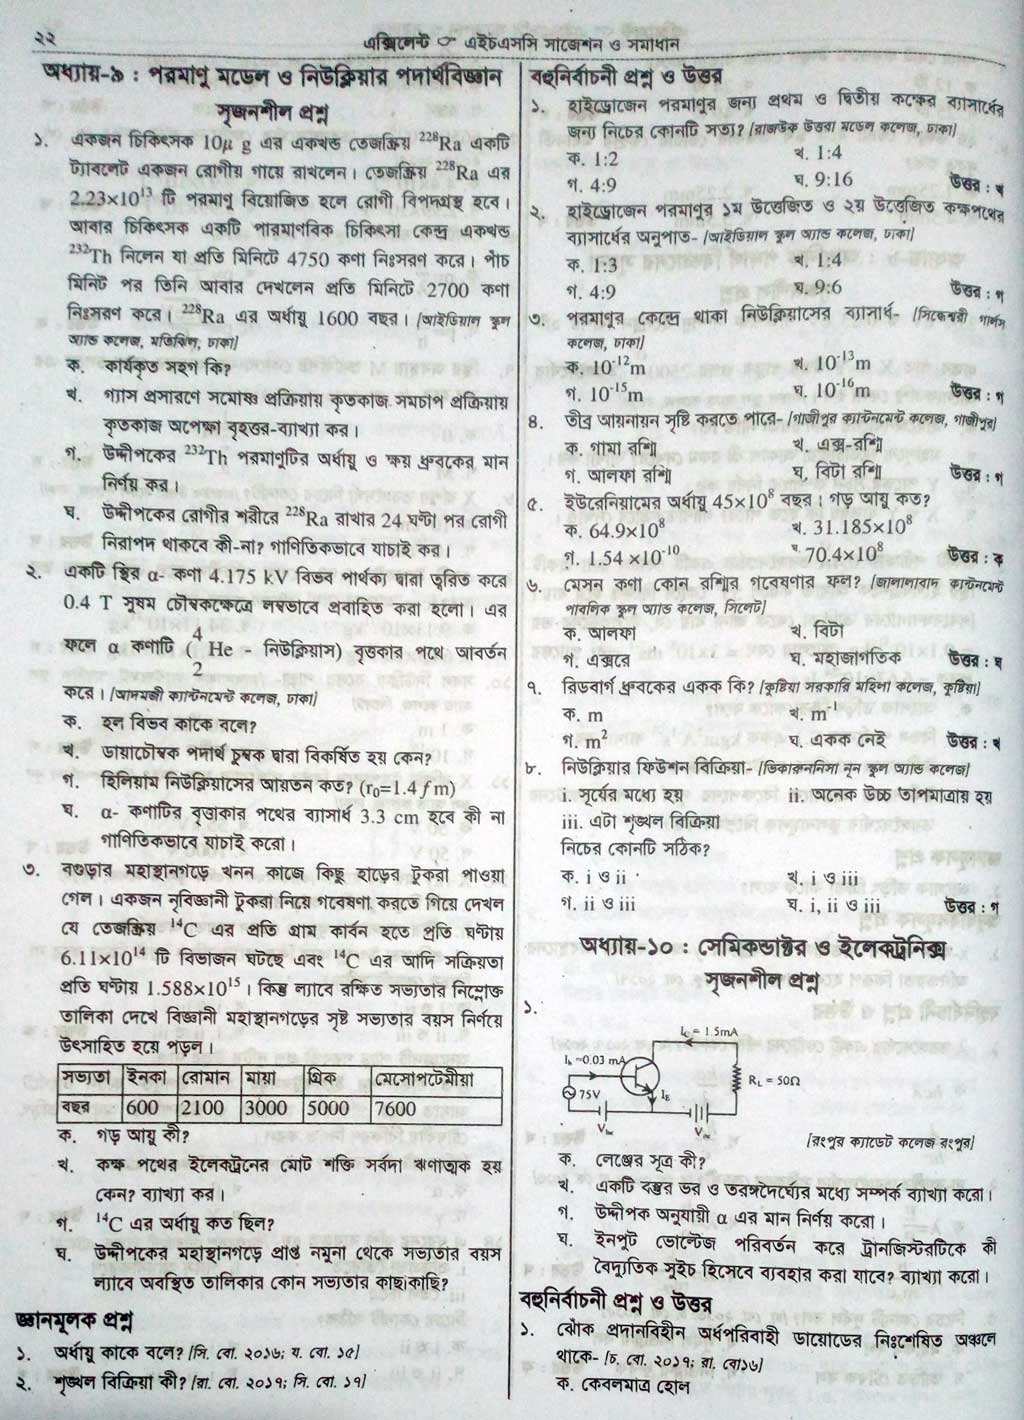 ২২
এক্সিলেন্ট ☞ এইচএসসি সাজেশন ও সমাধান
অধ্যায়-৯ : পরমাণু মডেল ও নিউক্লিয়ার পদার্থবিজ্ঞান
সৃজনশীল প্রশ্ন
১. একজন চিকিৎসক 10μ g এর একখন্ড তেজস্ক্রিয় ²²⁸Ra একটি
ট্যাবলেট একজন রোগীর গায়ে রাখলেন। তেজস্ক্রিয় ²²⁸Ra এর
2.23×10¹³ টি পরমাণু বিয়োজিত হলে রোগী বিপদগ্রস্থ হবে।
আবার চিকিৎসক একটি পারমাণবিক চিকিৎসা কেন্দ্র একখন্ড
²³²Th নিলেন যা প্রতি মিনিটে 4750 কণা নিঃসরণ করে। পাঁচ
মিনিট পর তিনি আবার দেখলেন প্রতি মিনিটে 2700 কণা
নিঃসরণ করে। ²²⁸Ra এর অর্ধায়ু 1600 বছর। [আইডিয়াল স্কুল
অ্যান্ড কলেজ, মতিঝিল, ঢাকা]
ক. কার্যকৃত সহগ কি?
খ. গ্যাস প্রসারণে সমোষ্ণ প্রক্রিয়ায় কৃতকাজ সমচাপ প্রক্রিয়ায়
কৃতকাজ অপেক্ষা বৃহত্তর-ব্যাখ্যা কর।
গ. উদ্দীপকের ²³²Th পরমাণুটির অর্ধায়ু ও ক্ষয় ধ্রুবকের মান
নির্ণয় কর।
ঘ. উদ্দীপকের রোগীর শরীরে ²²⁸Ra রাখার 24 ঘণ্টা পর রোগী
নিরাপদ থাকবে কী-না? গাণিতিকভাবে যাচাই কর।
২. একটি স্থির α- কণা 4.175 kV বিভব পার্থক্য দ্বারা ত্বরিত করে
0.4 T সুষম চৌম্বকক্ষেত্রে লম্বভাবে প্রবাহিত করা হলো। এর
ফলে α কণাটি ( 4 2 He - নিউক্লিয়াস) বৃত্তাকার পথে আবর্তন
করে। [আদমজী ক্যান্টনমেন্ট কলেজ, ঢাকা]
ক. হল বিভব কাকে বলে?
খ. ডায়াচৌম্বক পদার্থ চুম্বক দ্বারা বিকর্ষিত হয় কেন?
গ. হিলিয়াম নিউক্লিয়াসের আয়তন কত? (r₀=1.4 fm)
ঘ. α- কণাটির বৃত্তাকার পথের ব্যাসার্ধ 3.3 cm হবে কী না
গাণিতিকভাবে যাচাই করো।
৩. বগুড়ার মহাস্থানগড়ে খনন কাজে কিছু হাড়ের টুকরা পাওয়া
গেল। একজন নৃবিজ্ঞানী টুকরা নিয়ে গবেষণা করতে গিয়ে দেখল
যে তেজস্ক্রিয় ¹⁴C এর প্রতি গ্রাম কার্বন হতে প্রতি ঘণ্টায়
6.11×10¹⁴ টি বিভাজন ঘটছে এবং ¹⁴C এর আদি সক্রিয়তা
প্রতি ঘণ্টায় 1.588×10¹⁵। কিন্তু ল্যাবে রক্ষিত সভ্যতার নিম্নোক্ত
তালিকা দেখে বিজ্ঞানী মহাস্থানগড়ের সৃষ্ট সভ্যতার বয়স নির্ণয়ে
উৎসাহিত হয়ে পড়ল।
সভ্যতা ইনকা রোমান মায়া গ্রিক মেসোপটেমীয়া
বছর 600 2100 3000 5000 7600
ক. গড় আয়ু কী?
খ. কক্ষ পথের ইলেকট্রনের মোট শক্তি সর্বদা ঋণাত্মক হয়
কেন? ব্যাখ্যা কর।
গ. ¹⁴C এর অর্ধায়ু কত ছিল?
ঘ. উদ্দীপকের মহাস্থানগড়ে প্রাপ্ত নমুনা থেকে সভ্যতার বয়স
ল্যাবে অবস্থিত তালিকার কোন সভ্যতার কাছাকাছি?
জ্ঞানমূলক প্রশ্ন
১. অর্ধায়ু কাকে বলে? [সি. বো. ২০১৬; য. বো. ১৫]
২. শৃঙ্খল বিক্রিয়া কী? [রা. বো. ২০১৭; সি. বো. ১৭]
বহুনির্বাচনী প্রশ্ন ও উত্তর
১. হাইড্রোজেন পরমাণুর জন্য প্রথম ও দ্বিতীয় কক্ষের ব্যাসার্ধের
জন্য নিচের কোনটি সত্য? [রাজউক উত্তরা মডেল কলেজ, ঢাকা]
ক. 1:2 খ. 1:4
গ. 4:9 ঘ. 9:16 উত্তর : খ
২. হাইড্রোজেন পরমাণুর ১ম উত্তেজিত ও ২য় উত্তেজিত কক্ষপথের
ব্যাসার্ধের অনুপাত- [আইডিয়াল স্কুল অ্যান্ড কলেজ, ঢাকা]
ক. 1:3 খ. 1:4
গ. 4:9 ঘ. 9:6 উত্তর : গ
৩. পরমাণুর কেন্দ্রে থাকা নিউক্লিয়াসের ব্যাসার্ধ- [সিদ্ধেশ্বরী গার্লস
কলেজ, ঢাকা]
ক. 10⁻¹²m খ. 10⁻¹³m
গ. 10⁻¹⁵m ঘ. 10⁻¹⁶m উত্তর : গ
৪. তীব্র আয়নায়ন সৃষ্টি করতে পারে- [গাজীপুর ক্যান্টনমেন্ট কলেজ, গাজীপুর]
ক. গামা রশ্মি খ. এক্স-রশ্মি
গ. আলফা রশ্মি ঘ. বিটা রশ্মি উত্তর : গ
৫. ইউরেনিয়ামের অর্ধায়ু 45×10⁸ বছর। গড় আয়ু কত?
ক. 64.9×10⁸ খ. 31.185×10⁸
গ. 1.54 ×10⁻¹⁰ ঘ. 70.4×10⁸ উত্তর : ক
৬. মেসন কণা কোন রশ্মির গবেষণার ফল? [জালালাবাদ ক্যান্টনমেন্ট
পাবলিক স্কুল অ্যান্ড কলেজ, সিলেট]
ক. আলফা খ. বিটা
গ. এক্সরে ঘ. মহাজাগতিক উত্তর : ঘ
৭. রিডবার্গ ধ্রুবকের একক কি? [কুষ্টিয়া সরকারি মহিলা কলেজ, কুষ্টিয়া]
ক. m খ. m⁻¹
গ. m² ঘ. একক নেই উত্তর : খ
৮. নিউক্লিয়ার ফিউশন বিক্রিয়া- [ভিকারুননিসা নূন স্কুল অ্যান্ড কলেজ]
i. সূর্যের মধ্যে হয় ii. অনেক উচ্চ তাপমাত্রায় হয়
iii. এটা শৃঙ্খল বিক্রিয়া
নিচের কোনটি সঠিক?
ক. i ও ii খ. i ও iii
গ. ii ও iii ঘ. i, ii ও iii উত্তর : গ
অধ্যায়-১০ : সেমিকন্ডাক্টর ও ইলেকট্রনিক্স
সৃজনশীল প্রশ্ন
১.
I_C = 1.5mA
I_b =0.03 mA
R_L = 50Ω
75V
I_E
V_be
[রংপুর ক্যাডেট কলেজ রংপুর]
ক. লেঞ্জের সূত্র কী?
খ. একটি বস্তুর ভর ও তরঙ্গদৈর্ঘ্যের মধ্যে সম্পর্ক ব্যাখ্যা করো।
গ. উদ্দীপক অনুযায়ী α এর মান নির্ণয় করো।
ঘ. ইনপুট ভোল্টেজ পরিবর্তন করে ট্রানজিস্টরটিকে কী
বৈদ্যুতিক সুইচ হিসেবে ব্যবহার করা যাবে? ব্যাখ্যা করো।
বহুনির্বাচনী প্রশ্ন ও উত্তর
১. ঝোঁক প্রদানবিহীন অর্ধপরিবাহী ডায়োডের নিঃশেষিত অঞ্চলে
থাকে- [চ. বো. ২০১৭; রা. বো১৬]
ক. কেবলমাত্র হোল